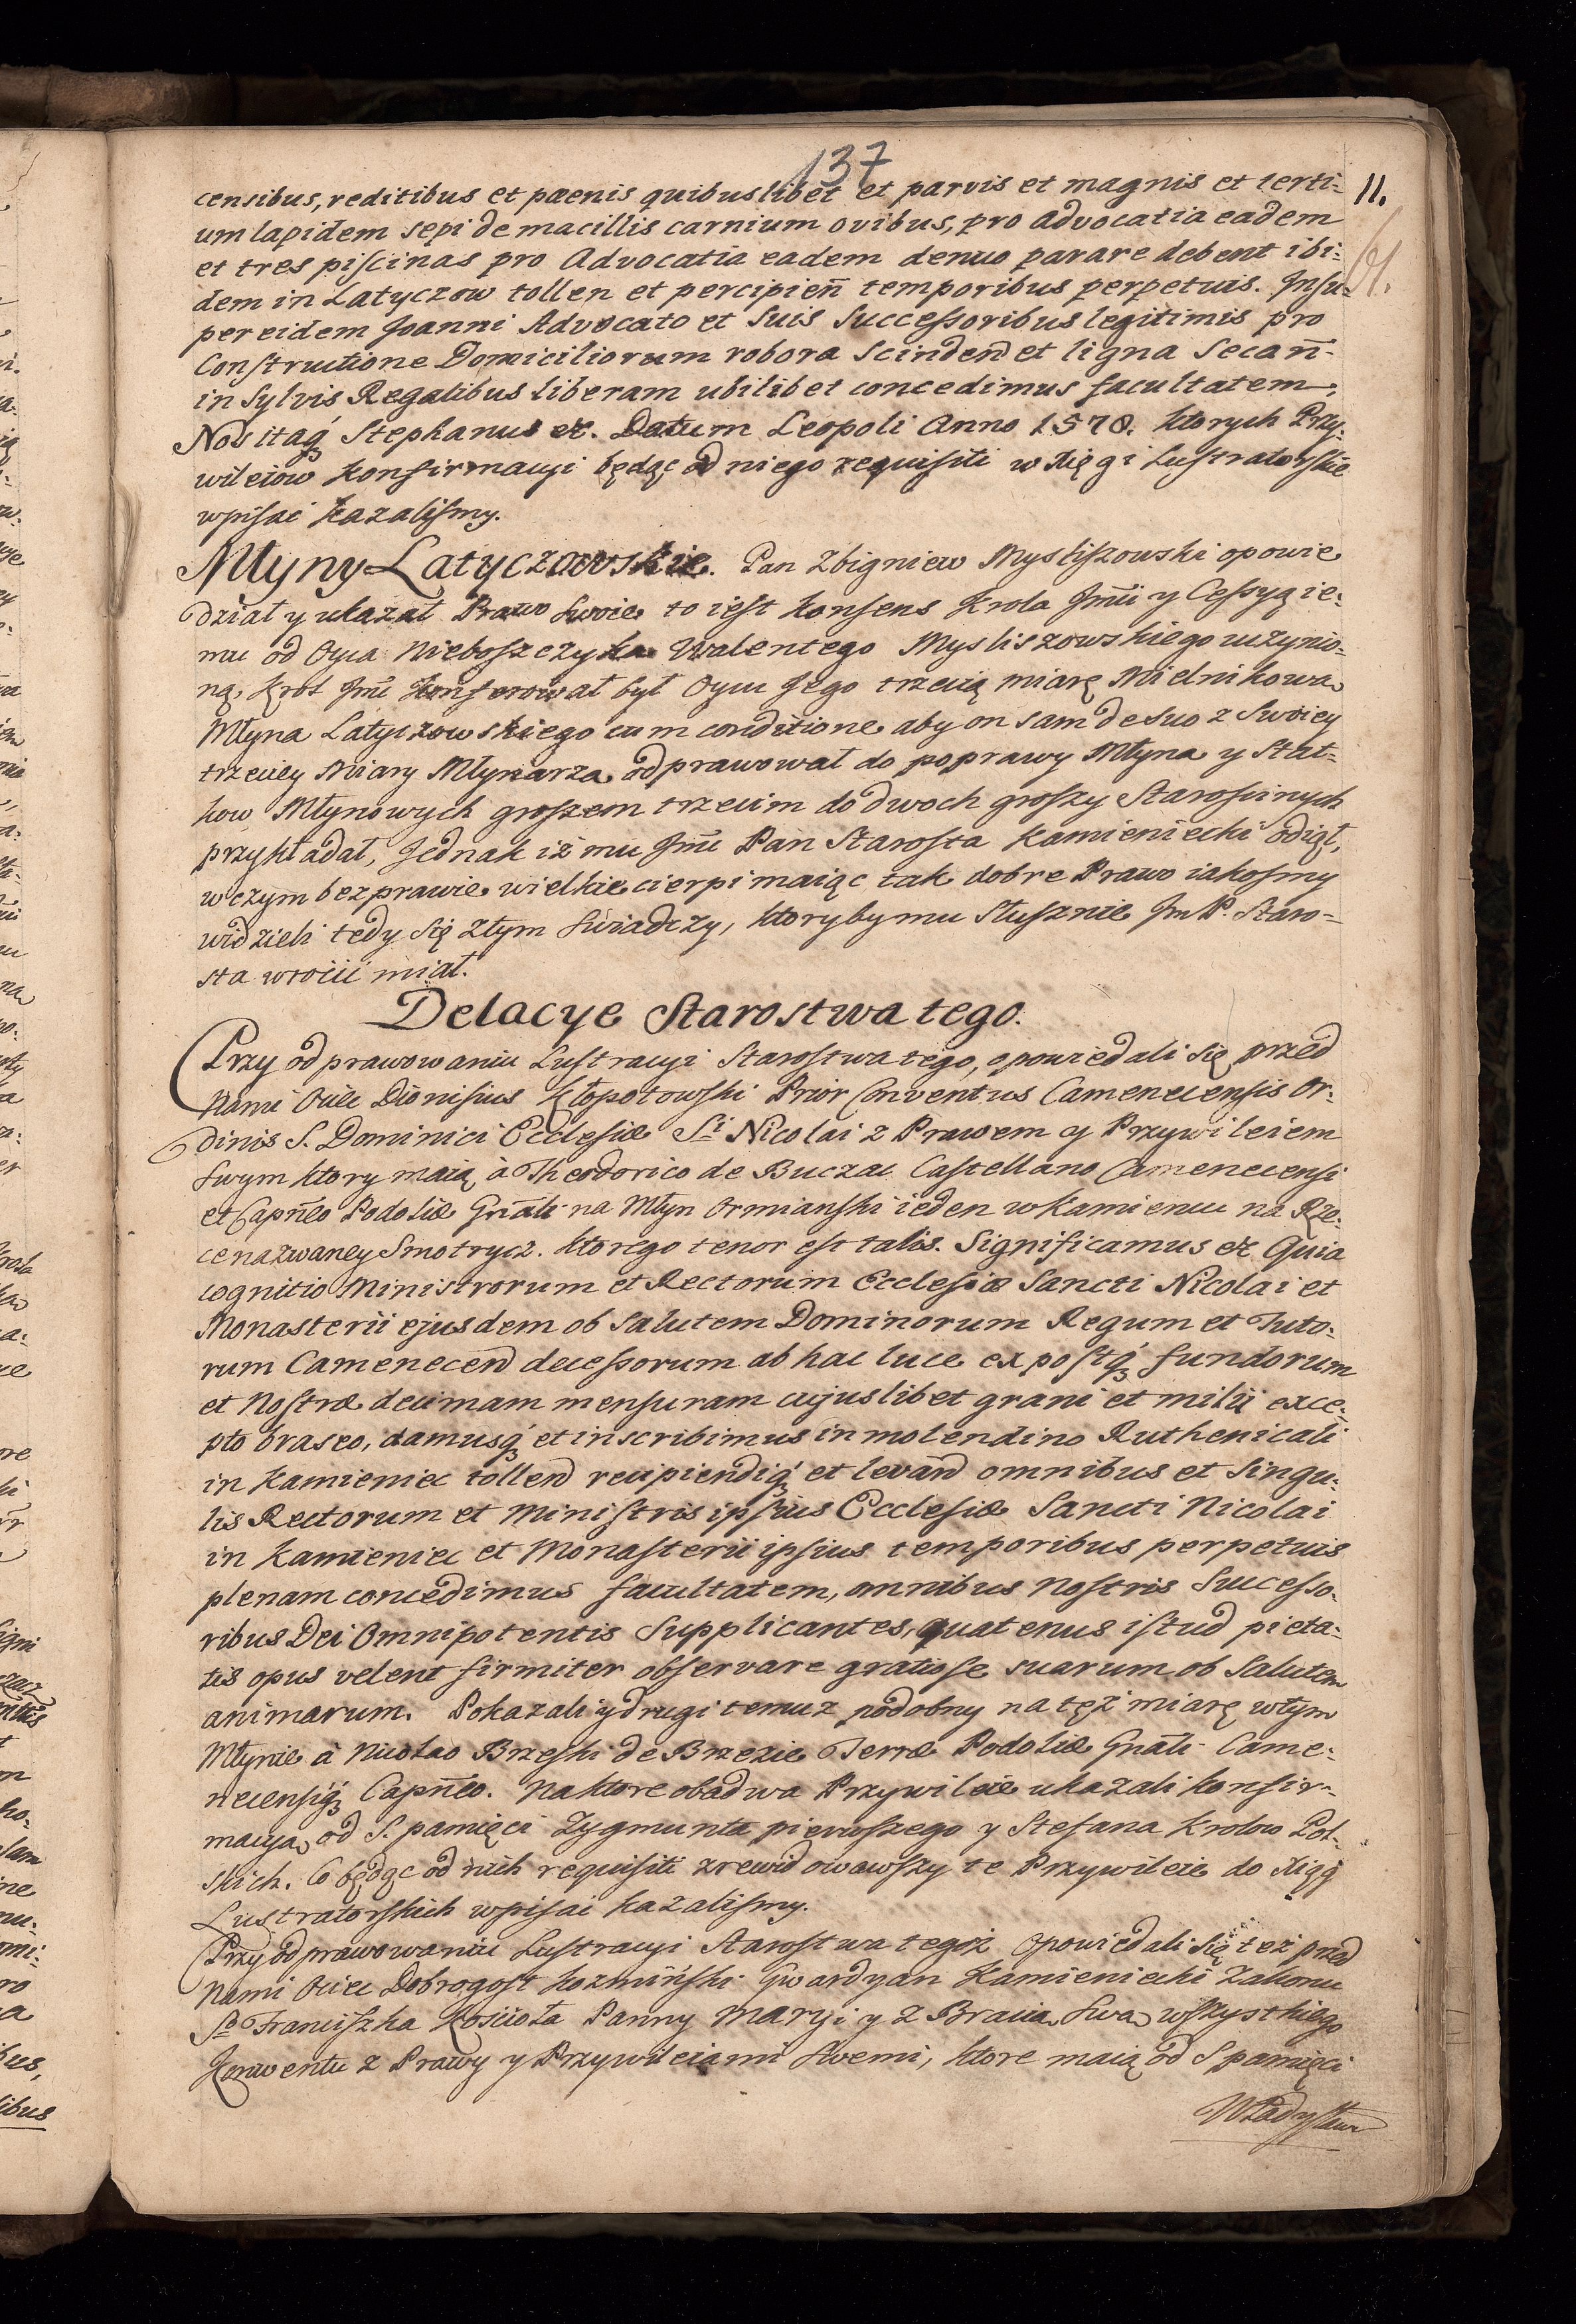 137
11.
61.
censibus, reditibus et paenis quibuslibet et parvis et magnis et terti-
um lapidem sepi de macillis carnium ovibus, pro advocatia eadem
et tres piscinas pro Advocatia eadem denuo parare debent ibi-
dem in Latyczow tollen et percipien̄ temporibus perpetuis. Insu-
per eidem Joanni Advocato et Suis Successoribus legitimis pro
Constructione Domiciliorum robora Scindend et ligna Secan̄-
in Sylvis Regalibus liberam ubilibet concedimus facultatem,
Nos itaq́ Stephanus et. Datum Leopoli Anno 1578. ktorych Przy-
wileiow Konfirmacyi będąc od niego requisiti w Xięgi Lustratorskie
wpisac kazalismy.
Młyny Latyczowskie. Pan Zbigniew Myslisżowski opowie
dział y ukazał Prawo Swoie to iest Konsens Krola Jmci y Cessyą ie-
mu od Oyca Nieboszczyka Walentego Mysliszowskiego uczynio-
ną, Krol Jmć Konferował był Oycu Jego trzecią miarę Mielnikową
Młyna Latyczowskiego cum conditione aby on sam de suo z Swoiey
trzeciey Miary Młynarza odprawował do poprawy Młyna y Stat-
kow Młynowych groszem trzecim do dwoch groszy Staroscinych
przykładał, Jednak iż mu Jmć Pan Starosta Kamieniecki odiął,
w czym bezprawie wielkie cierpi maiąc tak dobre Prawo iakosmy
widzieli tedy się z tym Swiadczy, ktoryby mu Słusznie Jm P. Staro-
sta wrocic miał.
Delacye Starostwa tego.
Przy odprawowaniu Lustracyi Starostwa tego, opowiedali się przed
Nami Ociec Dionisius Kłopotowski Prior Conventus Camenecensis Or-
dinis S. Dominici Ecclesiæ Sti Nicolai z Prawem y Przywileiem
Swym ktory maią à Theodorico de Buczac Castellano Camenecensi
et Capn̄eo Podoliæ Gnāli na Młyn Ormianski ieden w Kamiencu na Rze-
ce nazwaney Smotrycz. ktorego tenor est talis. Significamus et Quia
cognitio Ministrorum et Rectorum Ecclesiæ Sancti Nicolai et
Monasterii ejusdem ob Salutem Dominorum Regum et Tuto-
rum Camenecend decessorum ab hac luce ex postq́ fundorum
et Nostræ decimam mensuram cujuslibet grani et milii exce-
pto braseo, damusq́ et inscribimus in molendino Ruthenicali
in Kamieniec tollend recipiendiq́ et levand omnibus et Singu-
lis Rectorum et Ministris ipsius Ecclesiæ Sancti Nicolai
in Kamieniec et Monasterii ipsius temporibus perpetuis
plenam concedimus facultatem, omnibus Nostris Successo-
ribus Dei Omnipotentis Supplicantes, quatenus istud pieta-
tis opus velent firmiter observare gratiose suarum ob Salutem
animarum. Pokazali y drugi temuz podobny na też miarę w tym
Młynie à Nicolao Brzeski de Brzezie Terræ Podoliæ Gnāli Came-
necensiq́ Capn̄eo. Na ktore obadwa Przywileie ukazali konfir-
macyą od S. pamięci Zygmunta pierwszego y Stefana Krolow Pol-
skich. Co będąc od nich requisiti zrewidowawszy te Przywileie do Xiąg
Lustratorskich wpisac kazalismy.
Przy odprawowaniu Lustracyi Starostwa tegoż opowiedali się też przed
Nami Ociec Dobrogost Kozminski Gwardyan Kamieniecki Zakonu
So Franciszka Koscioła Panny Maryi y z Bracią Swą wszystkiego
Konwentu z Prawy y Przywileiami Swemi, ktore maią od S pamięci
Władysława